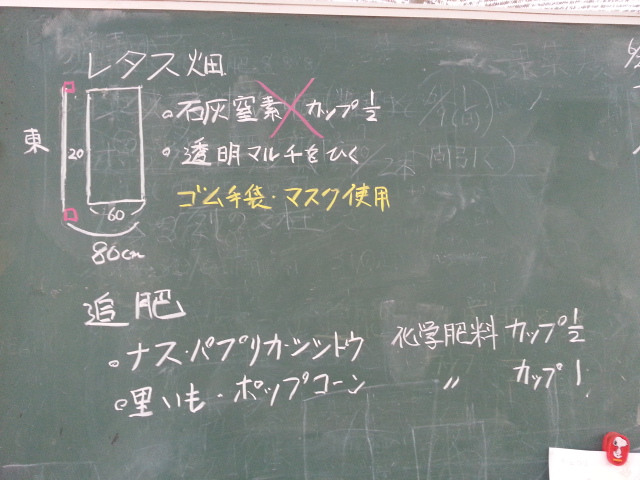 レタス畑
東
20
60
80cm
。石灰窒素 カップ1/2
。透明マルチをひく
ゴム手袋・マスク使用
追肥
。ナス・パプリカ・シシトウ 化学肥料 カップ1/2
。里いも・ポップコーン 〃 カップ1